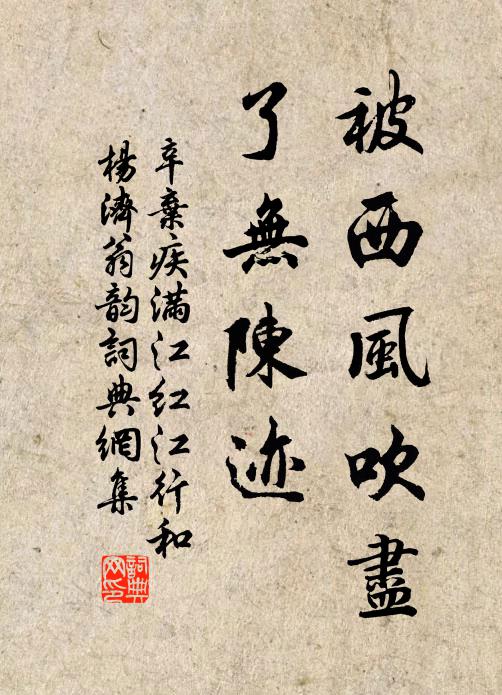 被西風吹盡
了無陳迹
辛棄疾满江红江行和
楊濟翁韵詞典網集
詞典网印